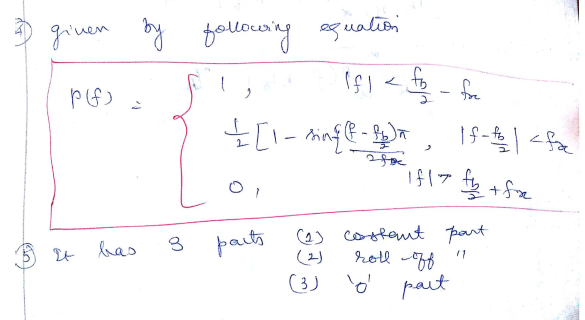 ④ given by following equation
P(f) = { 1 , |f| < fb/2 - fx
1/2 [1 - sin{(f - fb/2)π / 2fx , |f - fb/2| < fx
0 , |f| > fb/2 + fx
⑤ It has 3 parts (1) constant part
(2) roll-off "
(3) '0' part